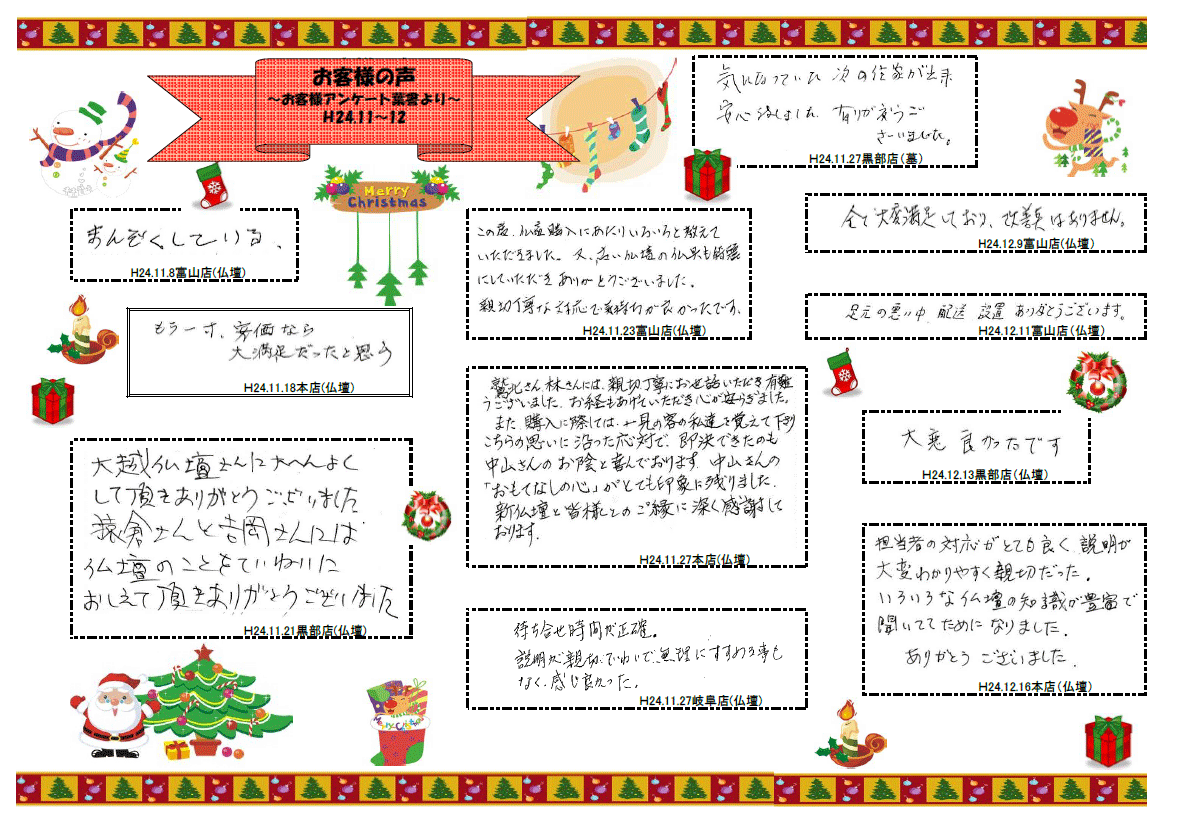 お客様の声
～お客様アンケート葉書より～
H24.11～12
Merry
Christmas
まんぞくしている、
H24.11.8富山店(仏壇)
もう一寸、安価なら
大満足だったと思う
H24.11.18本店(仏壇)
大越仏壇さんに大へんよく
して頂きありがとうございました
猿倉さんと吉岡さんには
仏壇のことをていねいに
おしえて頂きありがとうございました
H24.11.21黒部店(仏壇)
この度、仏壇購入にあたりいろいろと教えて
いただきました。又、古い仏壇の
にしていただき ありがとうございました。
親切丁寧な対応で気持ちが良かったです。
H24.11.23富山店(仏壇)
鷲北さん、林さんには、親切丁寧にお世話いただき有難
うございました。お経もあげていただき心が安らぎました。
また、購入に際しては、一見の客の私達を覚えて下さり
こちらの思いに沿った応対で、即決できたのも
中山さんのお陰と喜んでおります。中山さんの
「おもてなしの心」がとても印象に残りました。
新仏壇と皆様とのご縁に深く感謝して
おります。
H24.11.27本店(仏壇)
待ち合せ時間が正確。
説明が親切、ていねいで、無理にすすめる事も
なく、感じ良かった。
H24.11.27岐阜店(仏壇)
気になっていた 次の作業が出来
安心致しました。有りが
ざいました。
H24.11.27黒部店(墓)
全て大変満足しており、改善はありません。
H24.12.9富山店(仏壇)
足元の悪い中、配送 設置 ありがとうございます。
H24.12.11富山店(仏壇)
大変 良かったです
H24.12.13黒部店(仏壇)
担当者の対応がとても良く、説明が
大変わかりやすく親切だった。
いろいろな仏壇の知識が豊富で
聞いてて ためになりました。
ありがとう ございました。
H24.12.16本店(仏壇)